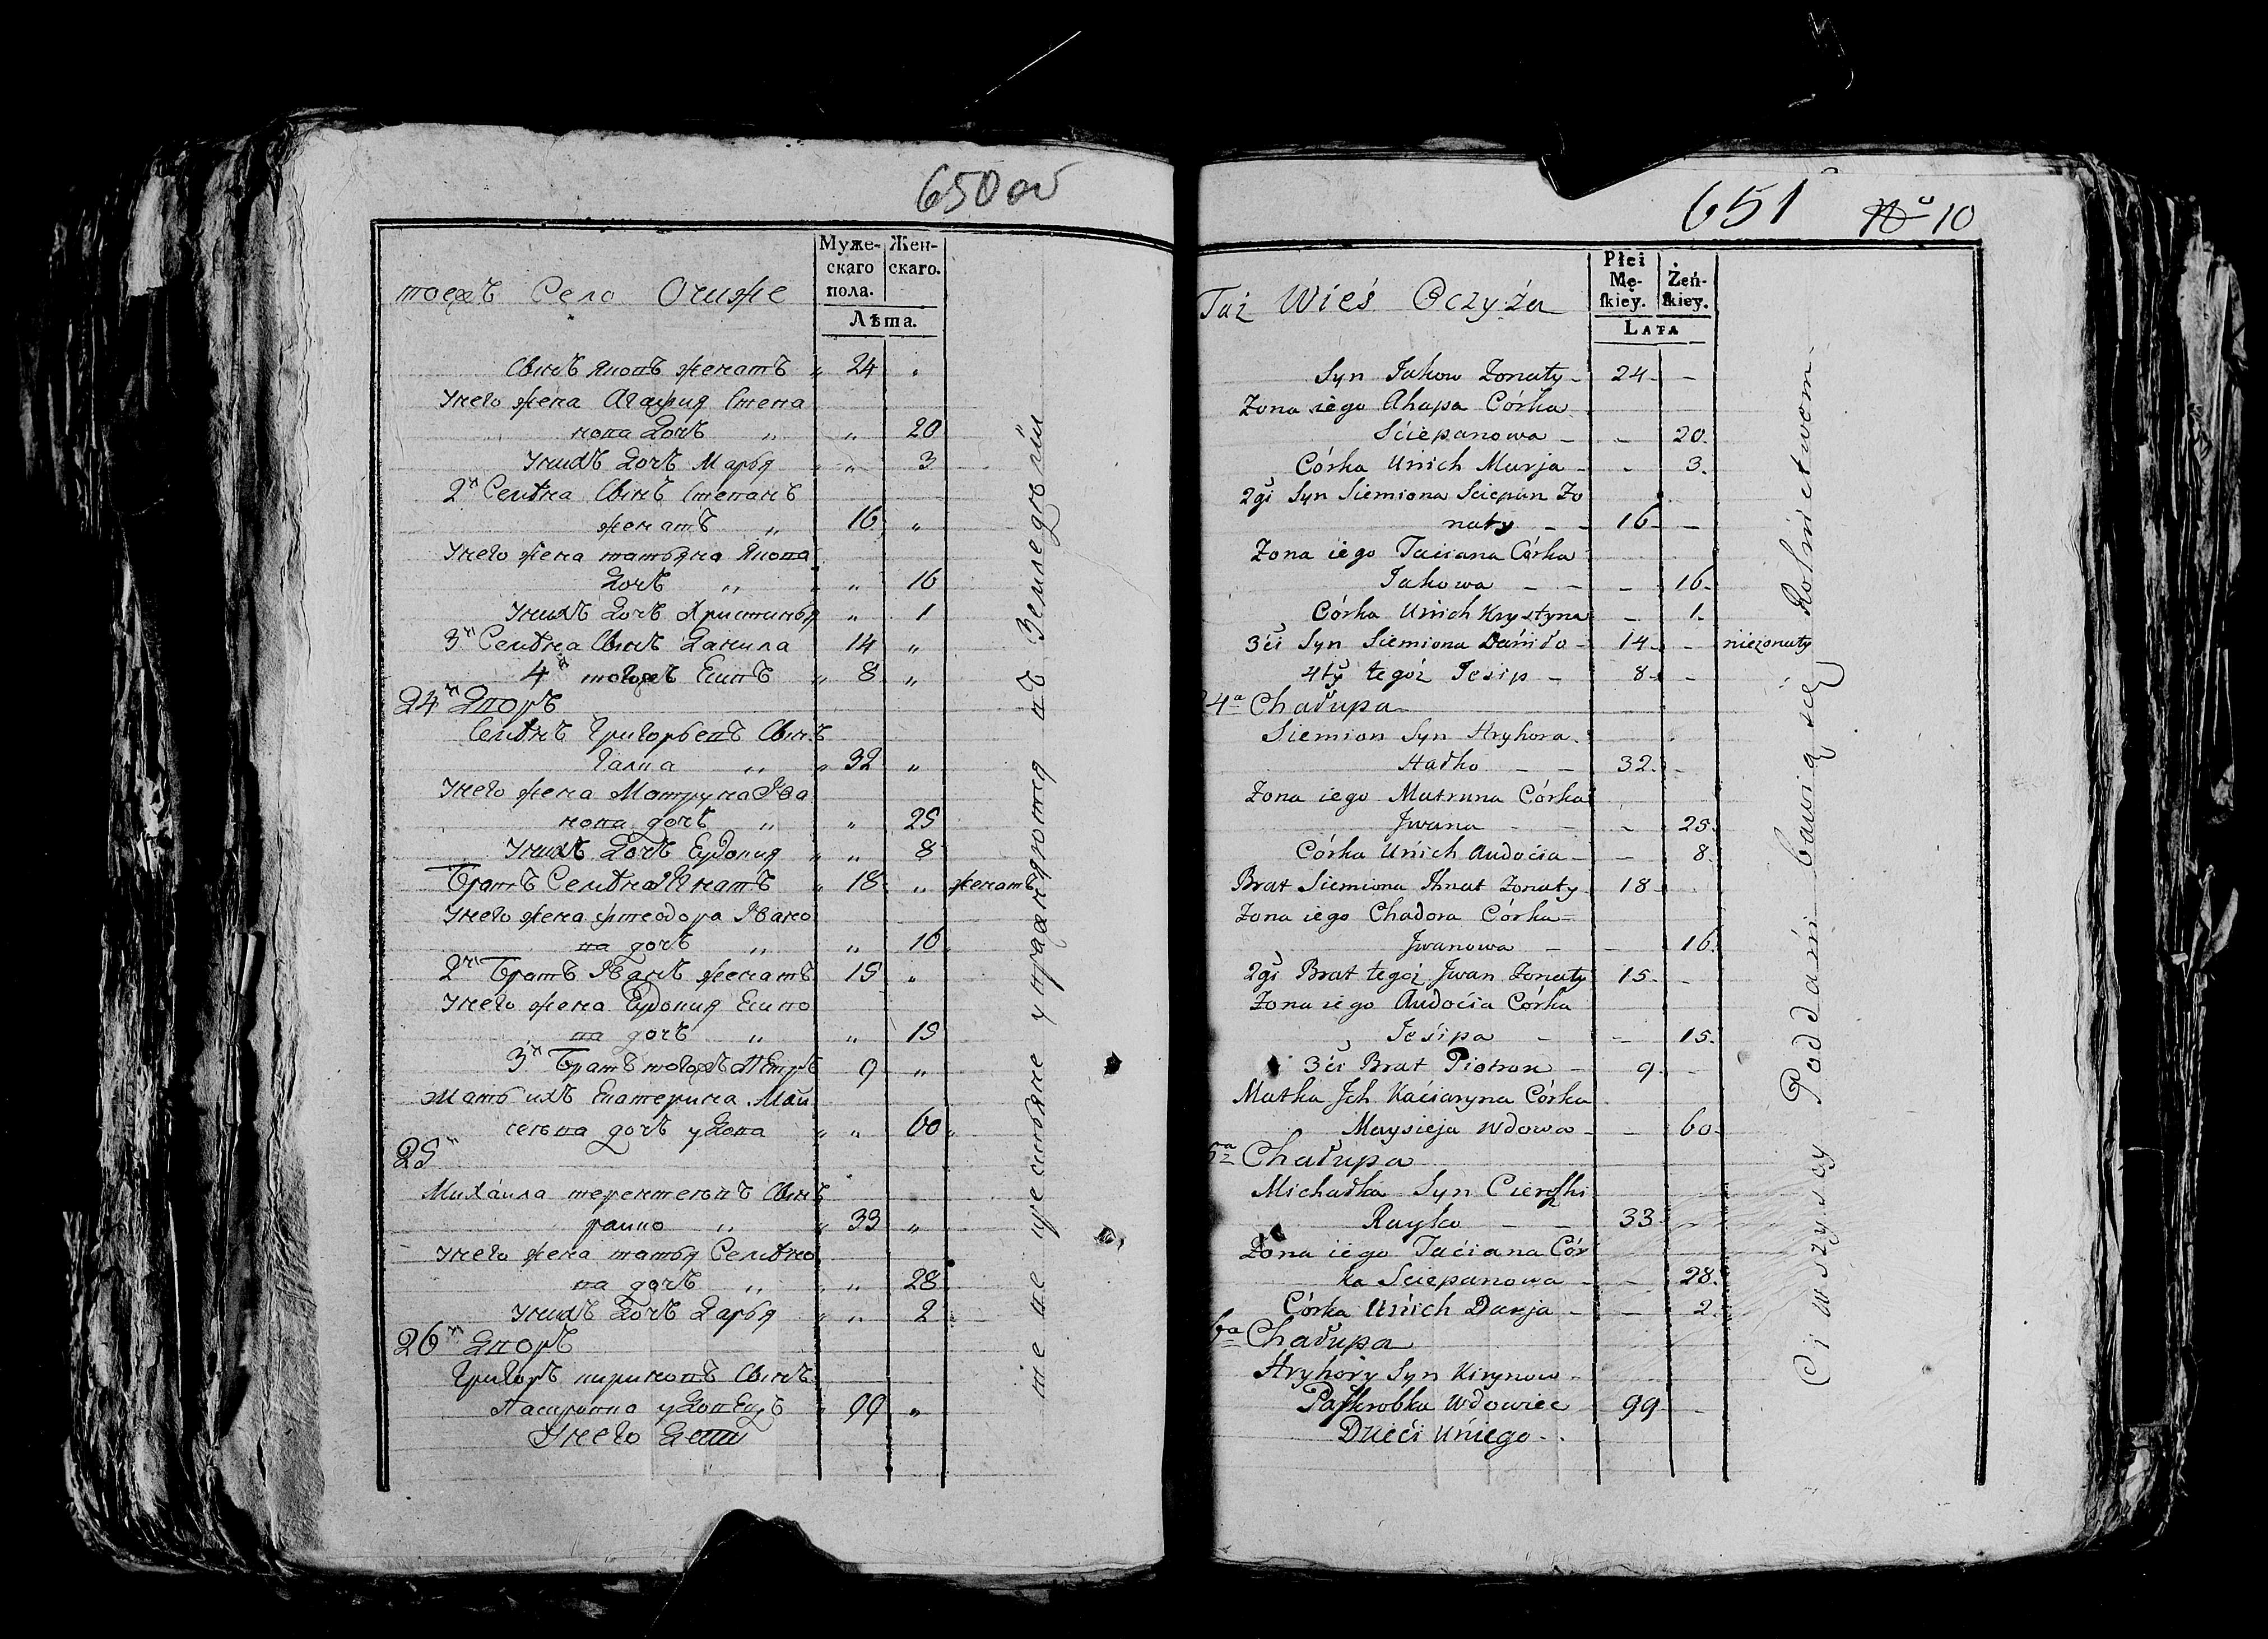 650 об
Муже-
скаго
пола.
Жен-
скаго.
Лѣта.
тоежъ Село Очиже
Сынъ Яковъ женатъ " 24 "
Унего жена Агафия Степа
нова дочь " " 20
Унихъ дочь Марья " " 3
2й Семѣна Сынъ Степанъ
женатъ " 16 "
Унего жена татьяна Якова
дочь " " 16
Унихъ дочь Христинья " 1
3й Семѣна Сынъ Данила 14 "
4й тогожъ Есипъ " 8 "
24й Дворъ
Семѣнъ Григорьевъ Сынъ
Галка " " 32 "
Унего жена Матруна Ива
нова дочь " " 25
Унихъ дочь Евдокия " " 8
Братъ Семѣна Игнатъ " 18 " женатъ
Унего жена фтеодора Ивано
ва дочь " " 16
2й Братъ Иванъ женатъ 15 "
Унего жена Евдокия Есипо
ва дочь " " 15
3й Братъ тогожъ Петръ 9 "
Мать ихъ Екатерина Май
сеева дочь удова " " 60
25й
Михайла терентевъ Сынъ
райко " " 33 "
Унего жена татья Семѣно
ва дочь " " 28
Унихъ дочь Дарья " " 2
26й Дворъ
Григоръ кириновъ Сынъ
Паскропка удовецъ " 99 "
Унего Дети
те все крестьяне упражняются въ Земледелии
651
No 10
Płci
Mę-
skiey.
Żeń-
skiey.
LATA
Taż Wieś Oczyża
Syn Jakow Żonaty - 24 - -
Żona iego Ahapa Córka
Sciepanowa - - 20.
Córka Unich Marja - - 3.
2gi Syn Siemiona Sciepan Żo
naty - - 16 - -
Żona iego Taciana Córka
Jakowa - - - 16.
Córka Unich Krystyna - 1.
3ci Syn Siemiona Daniło - 14 - - nieżonaty
4ty tegoż Jesip - 8 - -
4a Chałupa
Siemion Syn Hryhora
Hałko - - 32. -
Żona iego Matruna Córka
Jwana - - - 25.
Córka Unich Audocia - - 8.
Brat Siemiona Ihnat Żonaty - 18 -
Żona iego Chadora Córka -
Jwanowa - - 16.
2gi Brat tegoż Jwan Żonaty 15 - -
Żona iego Audocia Córka
Jesipa - - 15.
3ci Brat Piotron - 9 - -
Matka Jch Kaciaryna Córka
Maysieja Wdowa - - 60.
5a Chałupa
Michałka Syn Cieroszki
Rayko - - 33 -
Żona iego Taciana Cór
ka Sciepanowa - - 28.
Córka Unich Darja - - 2.
6a Chałupa
Hryhory Syn Kirynow -
Paskrobka Wdowiec - 99 -
Dzieci Uniego -.
Ci wszyscy Poddani bawią się Rolnictwom